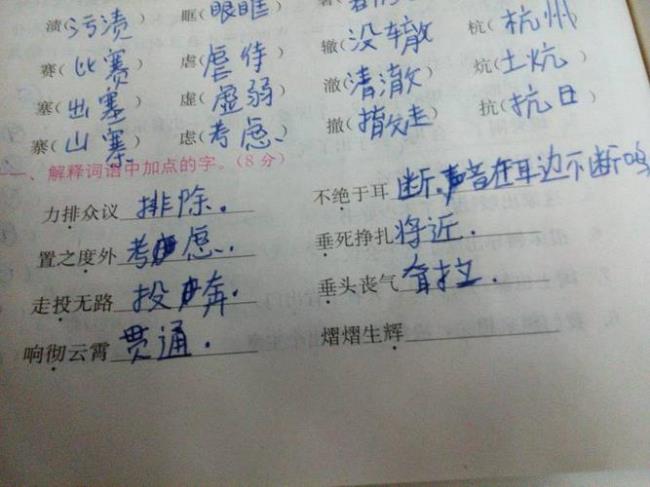 渍(污渍) 眶(眼眶)
赛(比赛) 虐(虐待) 辙(没辙) 杭(杭州)
塞(出塞) 虚(虚弱) 澈(清澈) 炕(土炕)
寨(山寨) 虑(考虑) 撤(撤走) 抗(抗日)
一、解释词语中加点的字。(8分)
力排众议 排除. 不绝于耳 断.声音在耳边不断鸣
置之度外 考虑. 垂死挣扎 将近.
走投无路 投奔. 垂头丧气 耷拉.
响彻云霄 贯通. 熠熠生辉